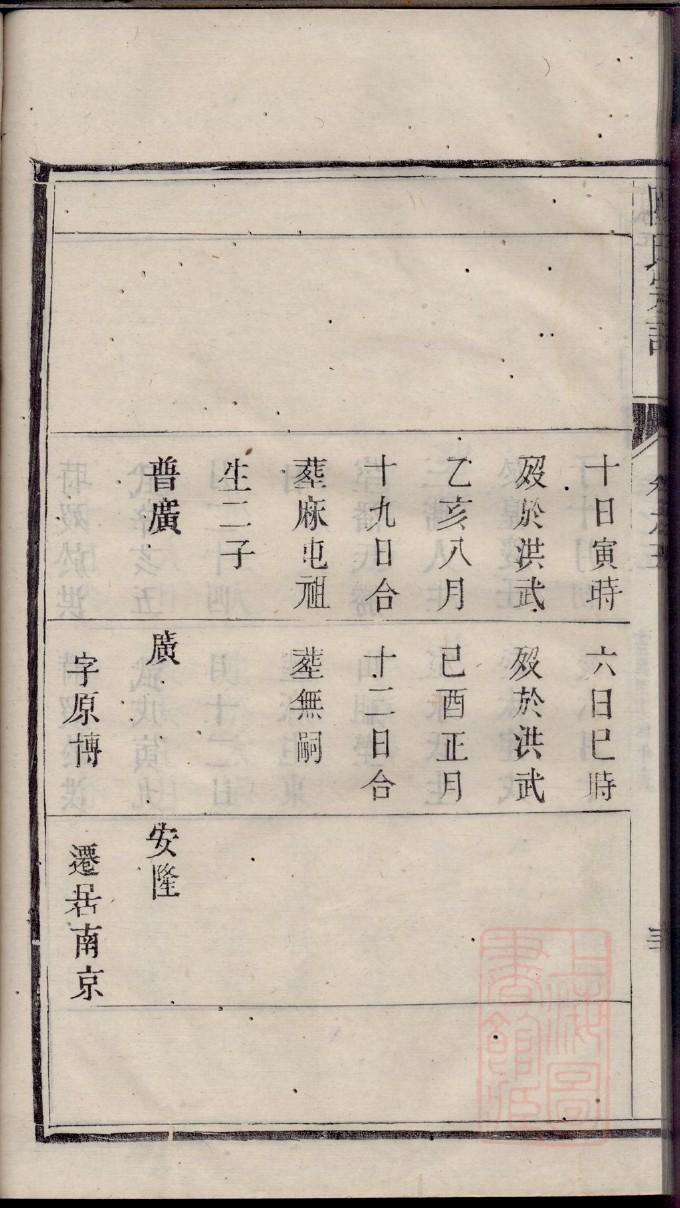 十日寅時
歿於洪武
乙亥八月
十九日合
塟麻屯祖
生二子
普廣
六日巳時
歿於洪武
己酉正月
十二日合
塟無嗣
廣
字原博
安隆
遷居南京
上海圖書館藏